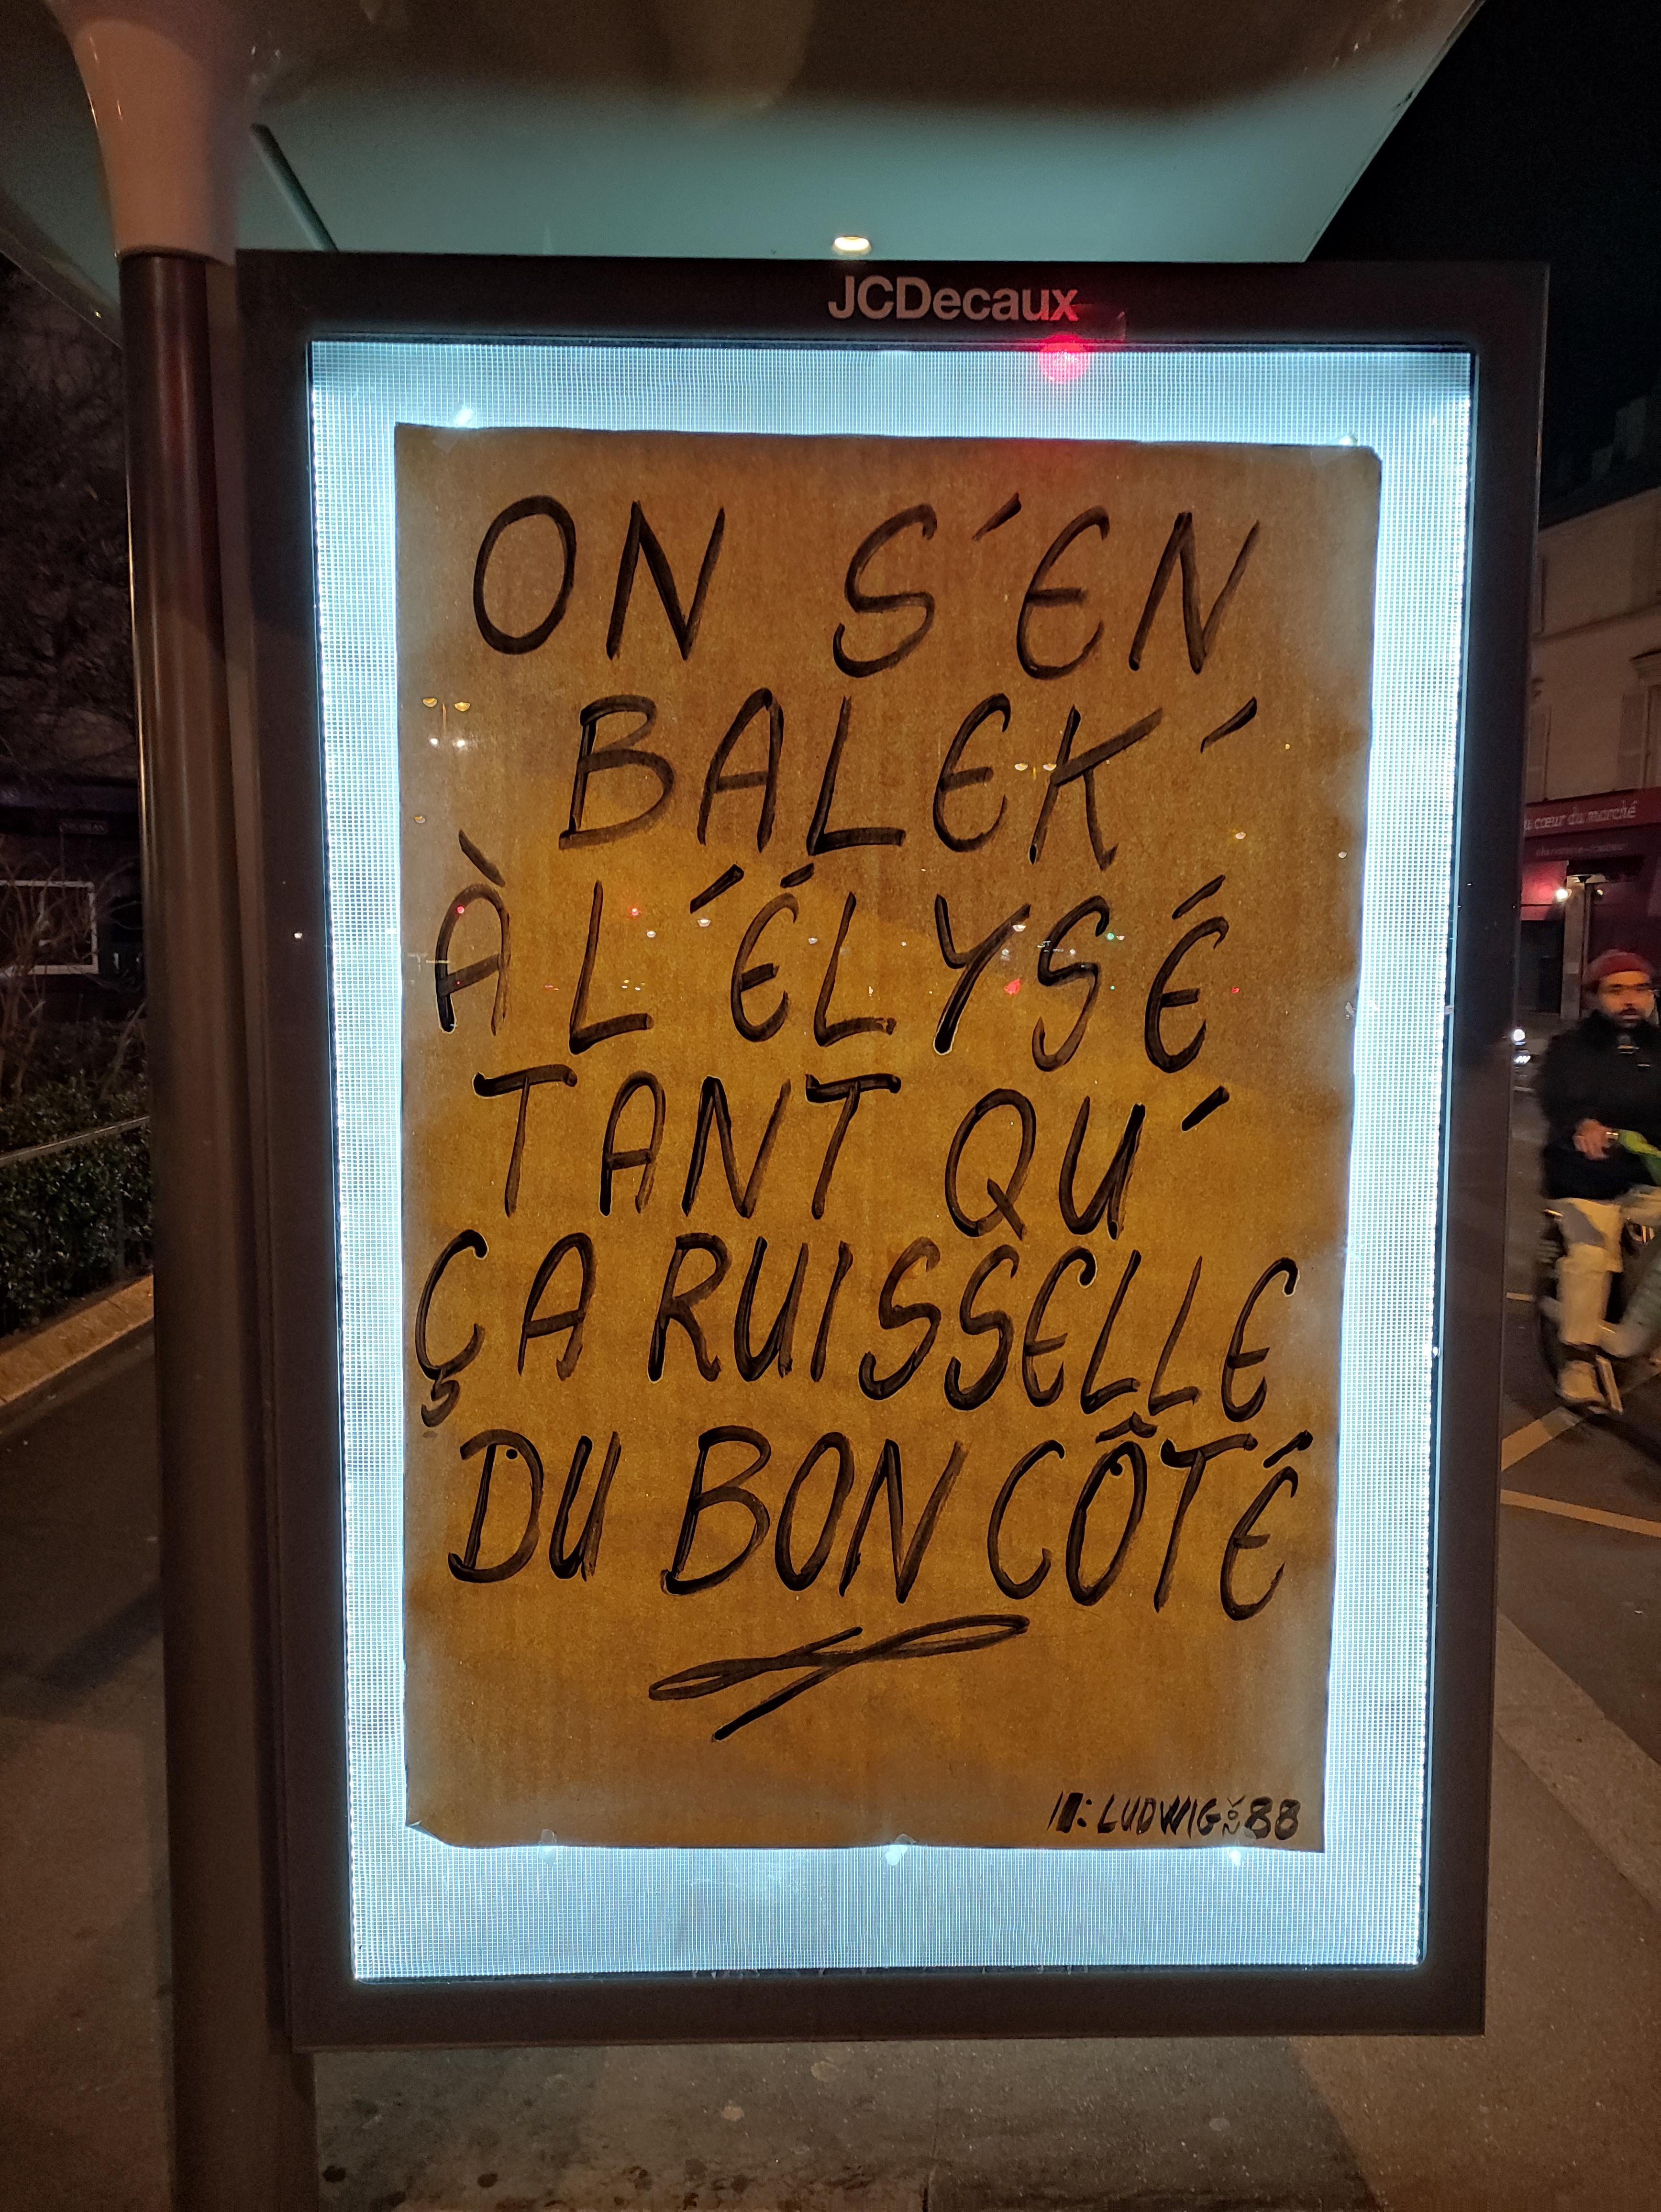 JCDecaux
ON S'EN
BALEK'
À L'ÉLYSÉ
TANT QU'
ÇA RUISSELLE
DU BON CÔTÉ
LUDWIG VON 88
u cœur du marché